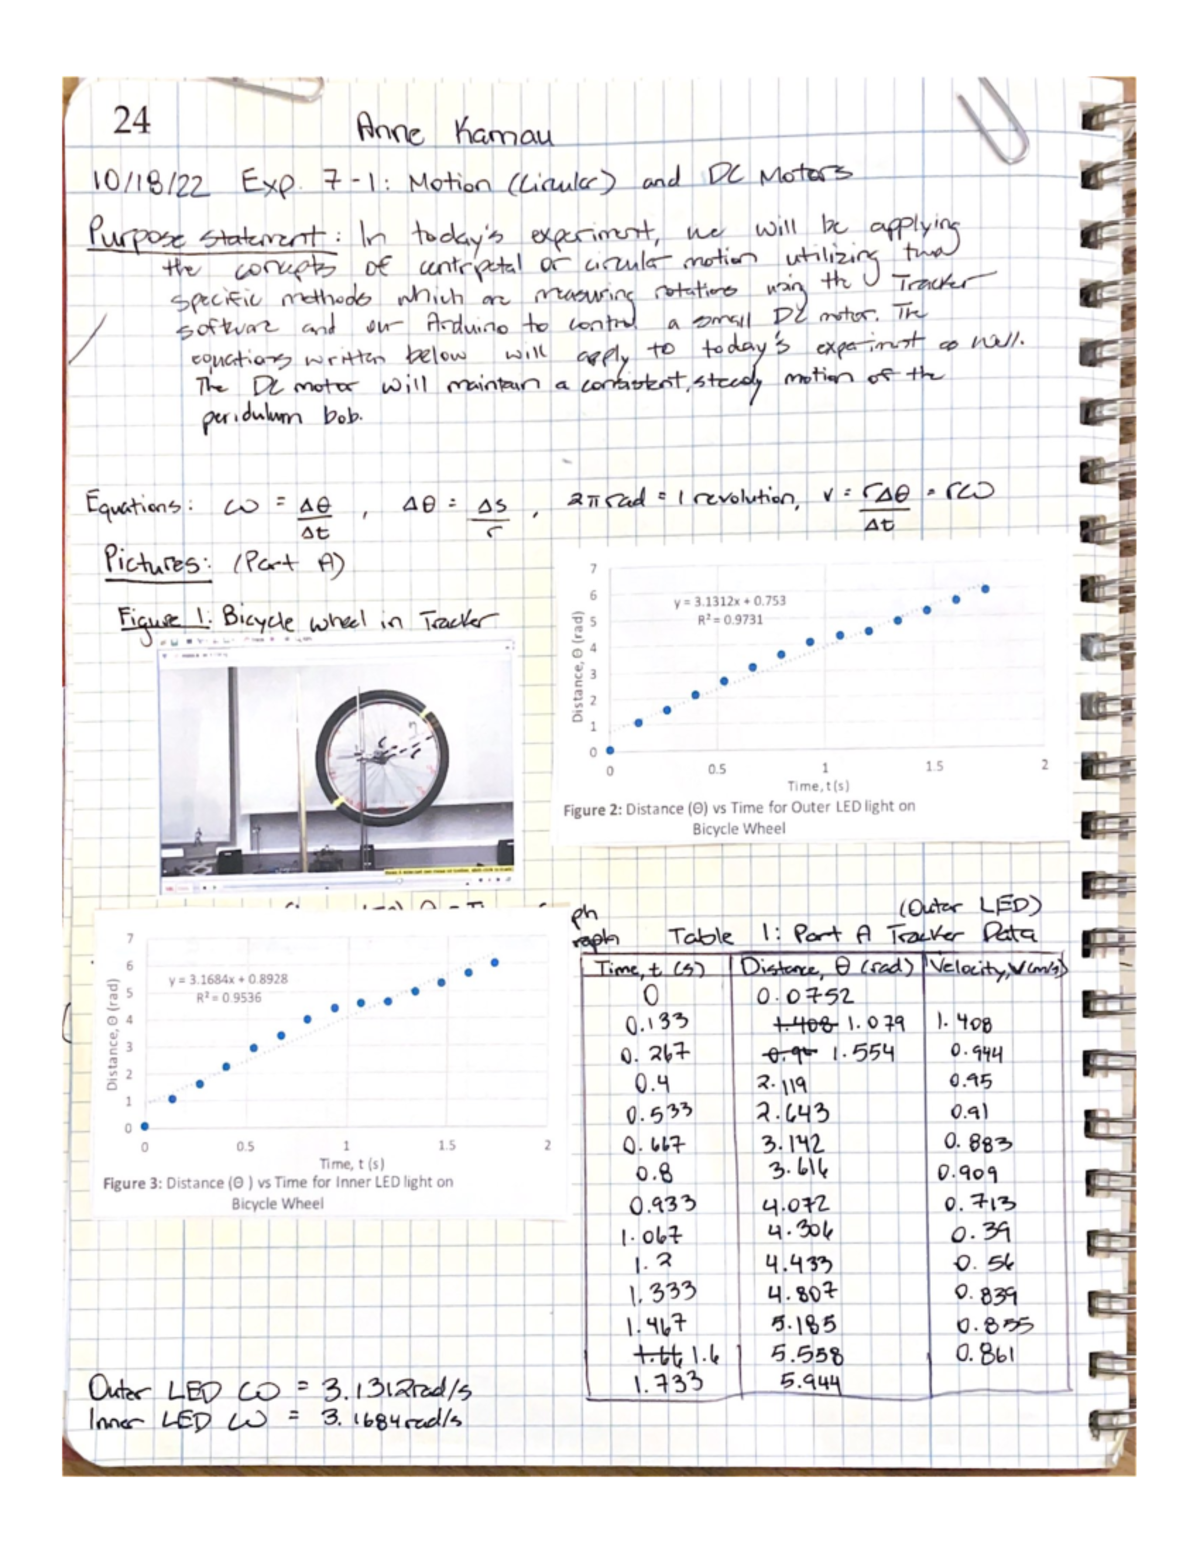 24
Anne Kamau
10/18/22 Exp. 7-1: Motion (Circular) and DC Motors
Purpose statement: In today's experiment, we will be applying
the concepts of centripetal or circular motion utilizing two
specific methods which are measuring rotations using the Tracker
software and our Arduino to control a small DC motor. The
equations written below will apply to today's experiment as well.
The DC motor will maintain a consistent, steady motion of the
pendulum bob.
Equations: ω = Δθ/Δt , Δθ = Δs/r , 2π rad = 1 revolution, v = rΔθ/Δt = rω
Pictures: (Part A)
Figure 1: Bicycle wheel in Tracker
7
6
5
4
3
2
1
0
Distance, Θ (rad)
y = 3.1312x + 0.753
R² = 0.9731
0 0.5 1 1.5 2
Time, t (s)
Figure 2: Distance (Θ) vs Time for Outer LED light on
Bicycle Wheel
7
6
5
4
3
2
1
0
Distance, Θ (rad)
y = 3.1684x + 0.8928
R² = 0.9536
0 0.5 1 1.5 2
Time, t (s)
Figure 3: Distance (Θ ) vs Time for Inner LED light on
Bicycle Wheel
ph
raph
(Outer LED)
Table 1: Part A Tracker Data
Time, t (s) Distance, θ (rad) Velocity, v (m/s)
0 0.0752
0.133 1.408 1.079 1.408
0.267 0.94 1.554 0.944
0.4 2.119 0.95
0.533 2.643 0.91
0.667 3.142 0.883
0.8 3.616 0.909
0.933 4.072 0.713
1.067 4.306 0.39
1.2 4.433 0.56
1.333 4.807 0.839
1.467 5.185 0.855
1.66 1.6 5.558 0.861
1.733 5.944
Outer LED ω = 3.1312rad/s
Inner LED ω = 3.1684rad/s